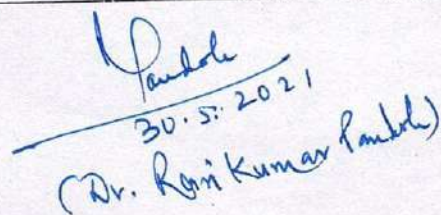 Pandole
30.5.2021
(Dr. Ravi Kumar Pandole)